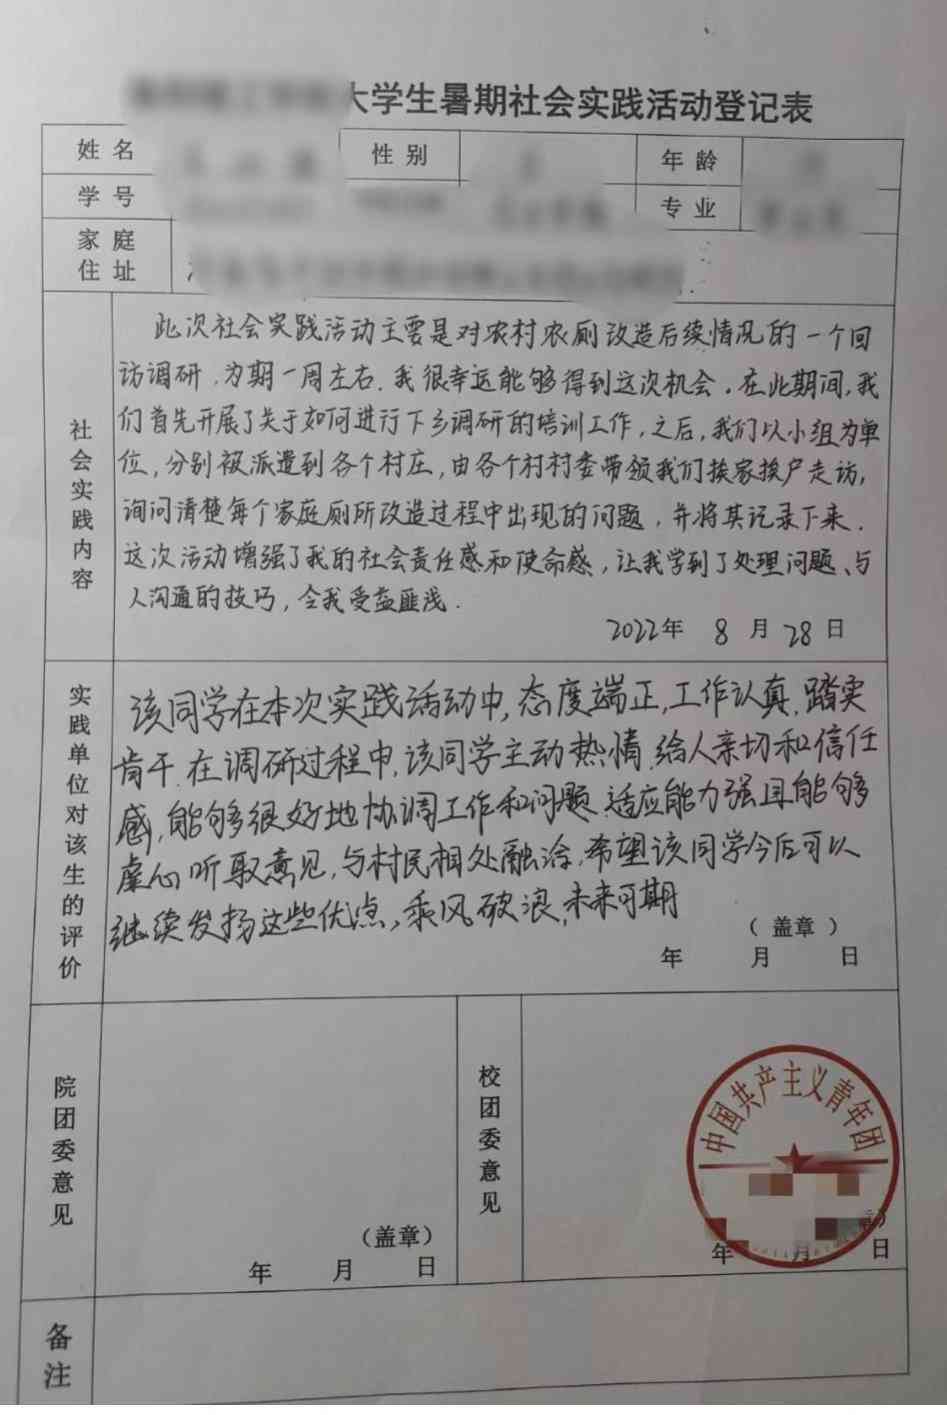 大学生暑期社会实践活动登记表
姓名 性别 年龄
学号 专业
家庭
住址
社会实践内容
此次社会实践活动主要是对农村农厕改造后续情况的一个回
访调研，为期一周左右.我很幸运能够得到这次机会.在此期间,我
们首先开展了关于如何进行下乡调研的培训工作,之后,我们以小组为单
位,分别被派遣到各个村庄,由各个村村委带领我们挨家挨户走访,
询问清楚每个家庭厕所改造过程中出现的问题,并将其记录下来.
这次活动增强了我的社会责任感和使命感,让我学到了处理问题、与
人沟通的技巧,令我受益匪浅.
2022年 8月28日
实践单位对该生的评价
该同学在本次实践活动中,态度端正,工作认真.踏实
肯干.在调研过程中,该同学主动热情.给人亲切和信任
感,能够很好地协调工作和问题.适应能力强且能够
虚心听取意见,与村民相处融洽,希望该同学今后可以
继续发扬这些优点,乘风破浪,未来可期
（盖章）
年 月 日
院团委意见
(盖章)
年 月 日
校团委意见
中国共产主义青年团
章)
年 月 日
备注